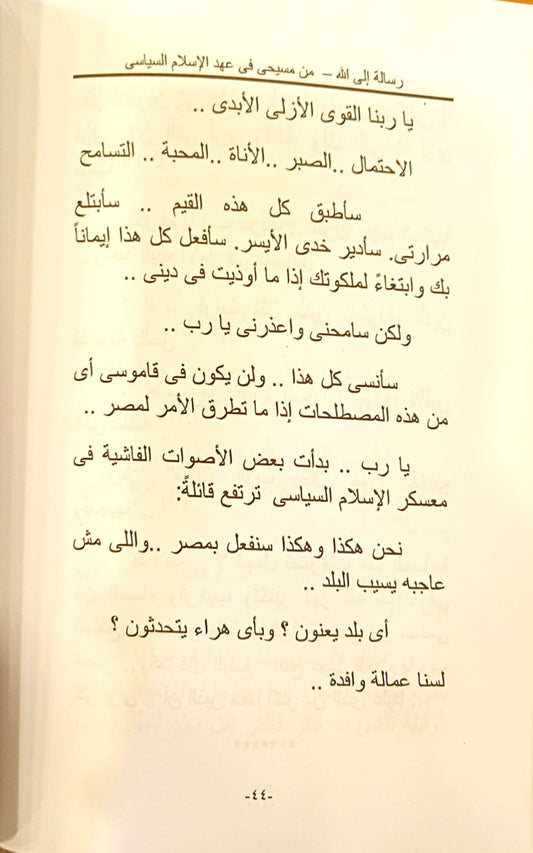 رسالة إلى الله – من مسيحى فى عهد الإسلام السياسى
يا ربنا القوى الأزلى الأبدى ..
الاحتمال ..الصبر ..الأناة ..المحبة .. التسامح
سأطبق كل هذه القيم .. سأبتلع
مرارتى. سأدير خدى الأيسر. سأفعل كل هذا إيماناً
بك وابتغاءً لملكوتك إذا ما أوذيت فى دينى ..
ولكن سامحنى واعذرنى يا رب ..
سأنسى كل هذا .. ولن يكون فى قاموسى أى
من هذه المصطلحات إذا ما تطرق الأمر لمصر ..
يا رب .. بدأت بعض الأصوات الفاشية فى
معسكر الإسلام السياسى ترتفع قائلةً:
نحن هكذا وهكذا سنفعل بمصر ..واللى مش
عاجبه يسيب البلد ..
أى بلد يعنون ؟ وبأى هراء يتحدثون ؟
لسنا عمالة وافدة ..
-٤٤-